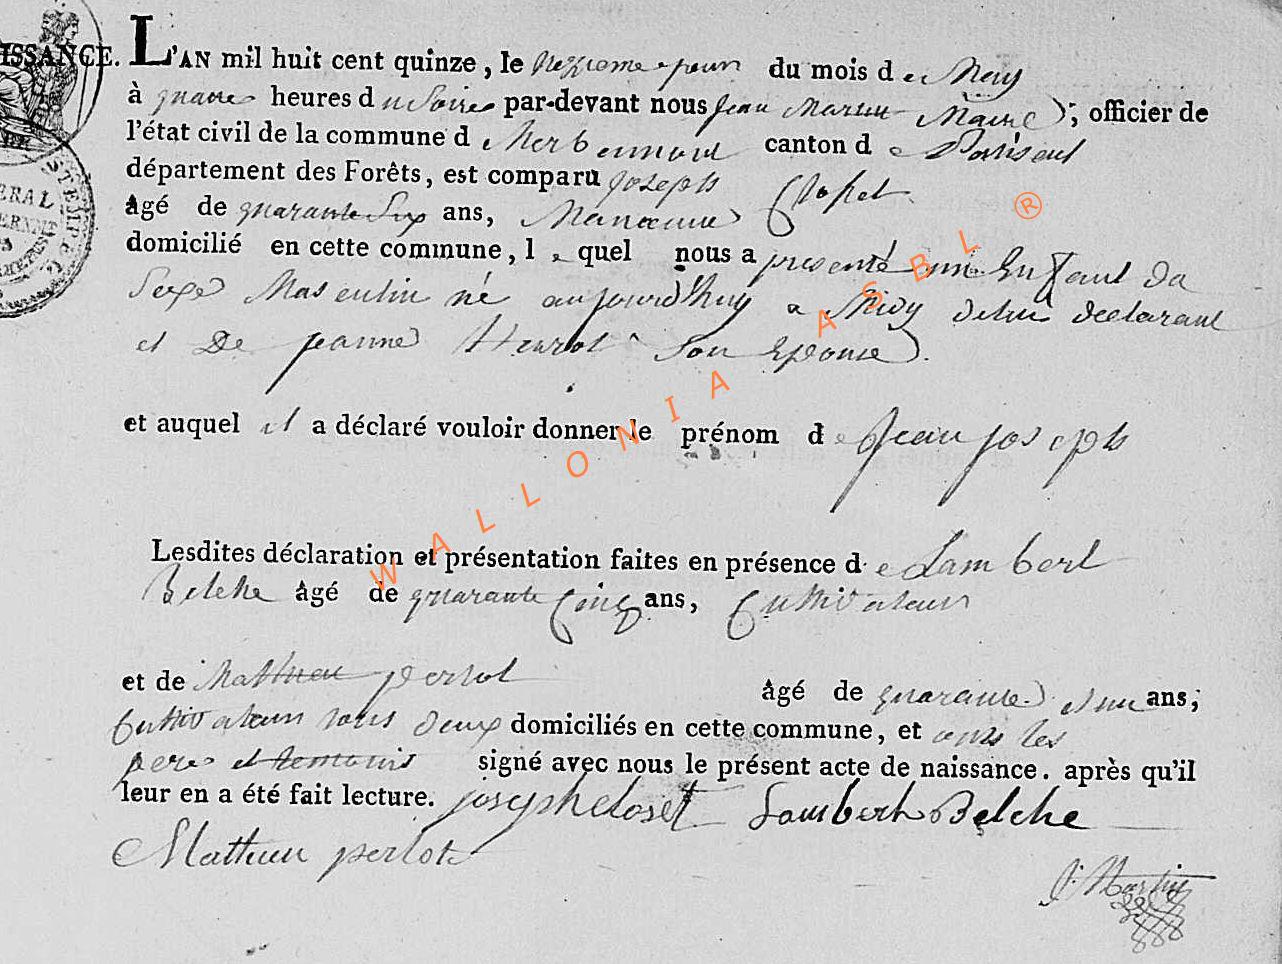 ISSANCE. L'AN mil huit cent quinze, le jour du mois de May
à quatre heures du Soire par-devant nous jean Martin Maire; officier de
l'état civil de la commune d herbeumont canton de Paliseul
département des Forêts, est comparu joseph Closset
âgé de quarante Six ans, Manoeuvre
domicilié en cette commune, le quel nous a présenté un Enfant du
Sexe Masculin né aujourd'huy a Midy de lui declarant
et De jeanne Son Epouse.
et auquel il a déclaré vouloir donner le prénom de jean joseph
Lesdites déclaration et présentation faites en présence de Lambert
Belche âgé de quarante Cinq ans, Cultivateur
et de Mathieu perlot âgé de quarante et un ans;
Cultivateur tous deux domiciliés en cette commune, et ont les
pere et temoins signé avec nous le présent acte de naissance. après qu'il
leur en a été fait lecture. joseph closset Lambert Belche
Mathieu perlot
J. Martin
ERAL
STEMPEL
WALLONIA ASBL ®